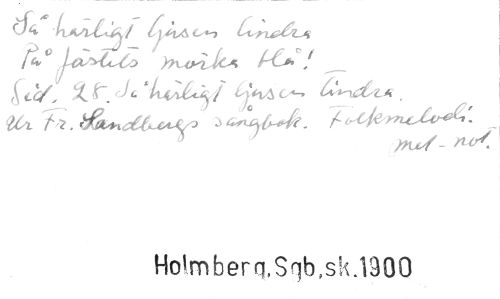 Så härligt ljusen tindra
På fästets mörka blå!
Sid. 28. Så härligt ljusen tindra.
Ur Fr. Sandbergs sångbok. Folkmelodi.
mel-not.
Holmberg,Sgb,sk.1900